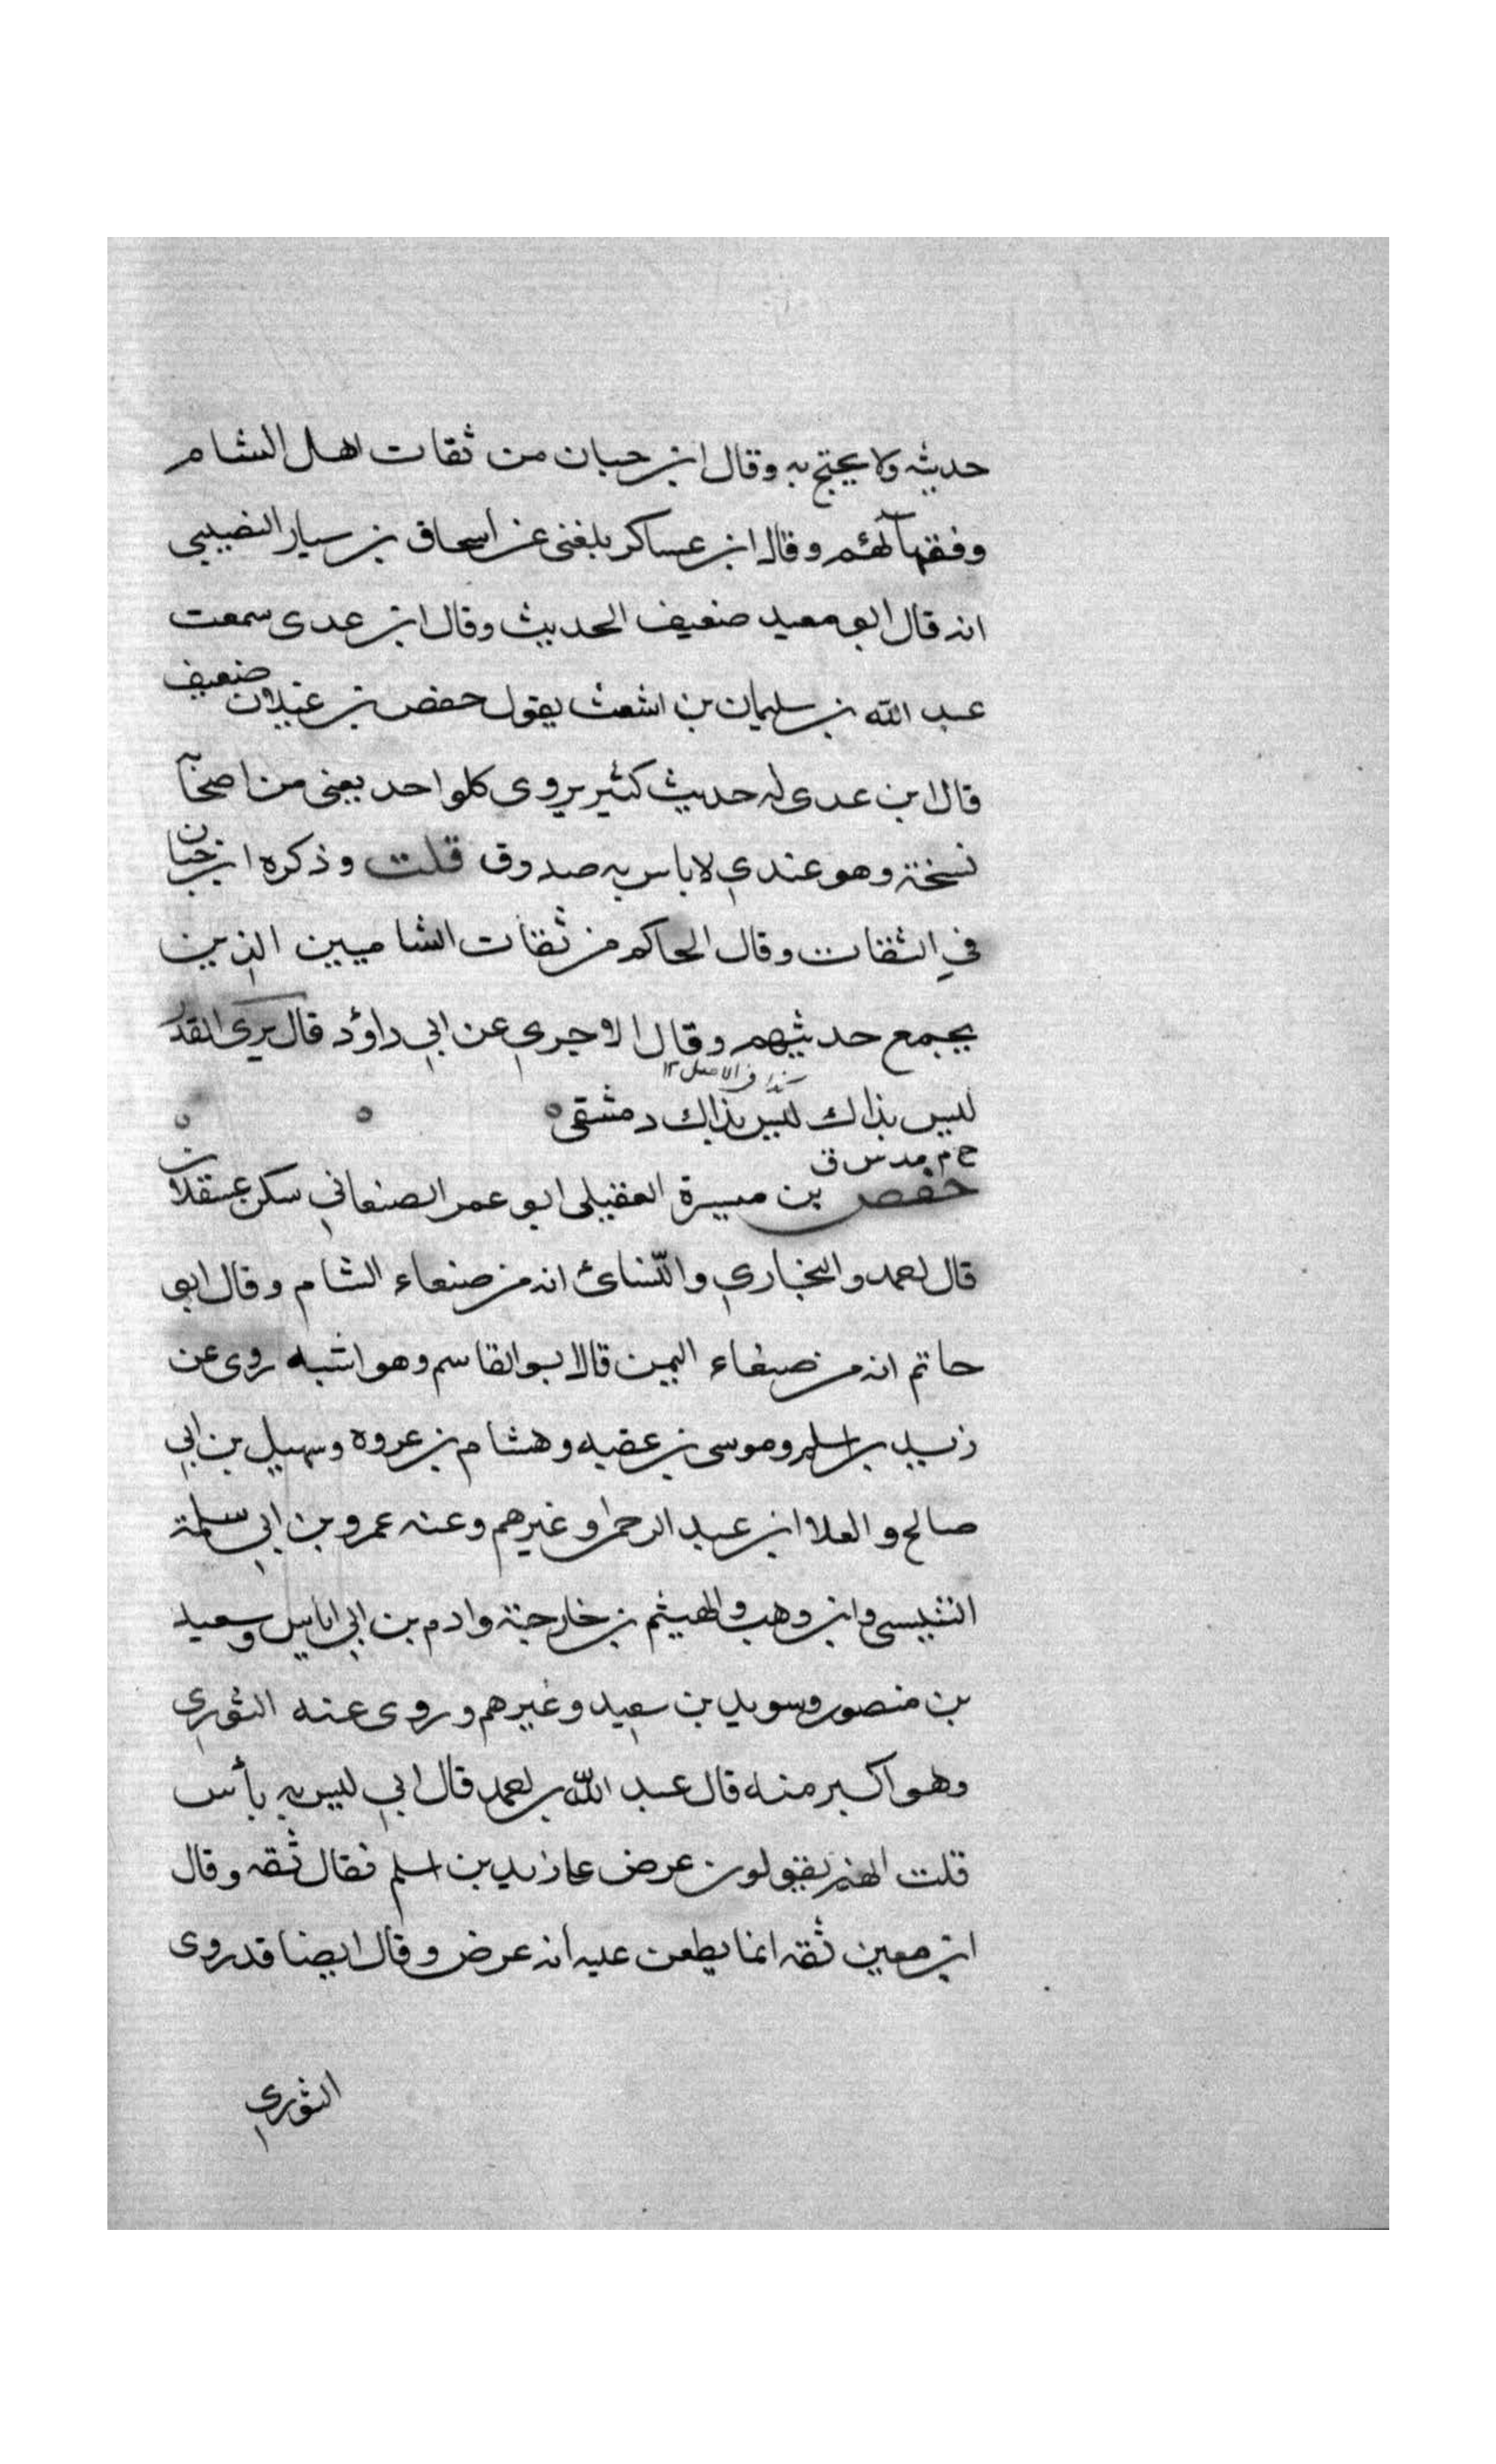 حديثه ولا يحتج به وقال ابن حبان من ثقات اهل الشام
وفقهائهم وقال ابن عساكر بلغني عن اسحاق بن سيار النصيبي
انه قال ابو معيد ضعيف الحديث وقال ابن عدى سمعت
عبد الله بن سليمان بن اشعث يقول حفص بن غيلان ضعيف
قال ابن عدى له حديث كثير يروى كلواحد يعنى من اصحابه
نسخة وهو عندي لاباس به صدوق قلت وذكره ابن حبان
في الثقات وقال الحاكم من ثقات الشاميين الذين
يجمع حديثهم وقال الاجري عن ابي داؤد قال يرى القدر
كذا في الاصل ١٢
ليس بذاك ليس بذاك دمشقى ٥ ٥ ٥
خ م مد س ق
حفص بن ميسرة العقيلى ابو عمر الصنعاني سكن عسقلان
قال احمد والبخاري والنسائ انه من صنعاء الشام وقال ابو
حاتم انه من صنعاء اليمن قال ابو القاسم وهو اشبه روى عن
زيد بن اسلم وموسى بن عقبه وهشام بن عروه وسهيل بن ابي
صالح والعلا ابن عبد الرحمن وغيرهم وعنه عمرو بن ابي سلمة
التنيسى وابن وهب والهيثم بن خارجة وادم بن ابي اياس وسعيد
بن منصور وسويد بن سعيد وغيرهم وروى عنه الثوري
وهو اكبر منه قال عبد الله بن احمد قال ابي ليس به بأس
قلت انهم يقولون عرض على زيد بن اسلم فقال ثقه وقال
ابن معين ثقه انما يطعن عليه انه عرض وقال ايضا قد روى
الثوري